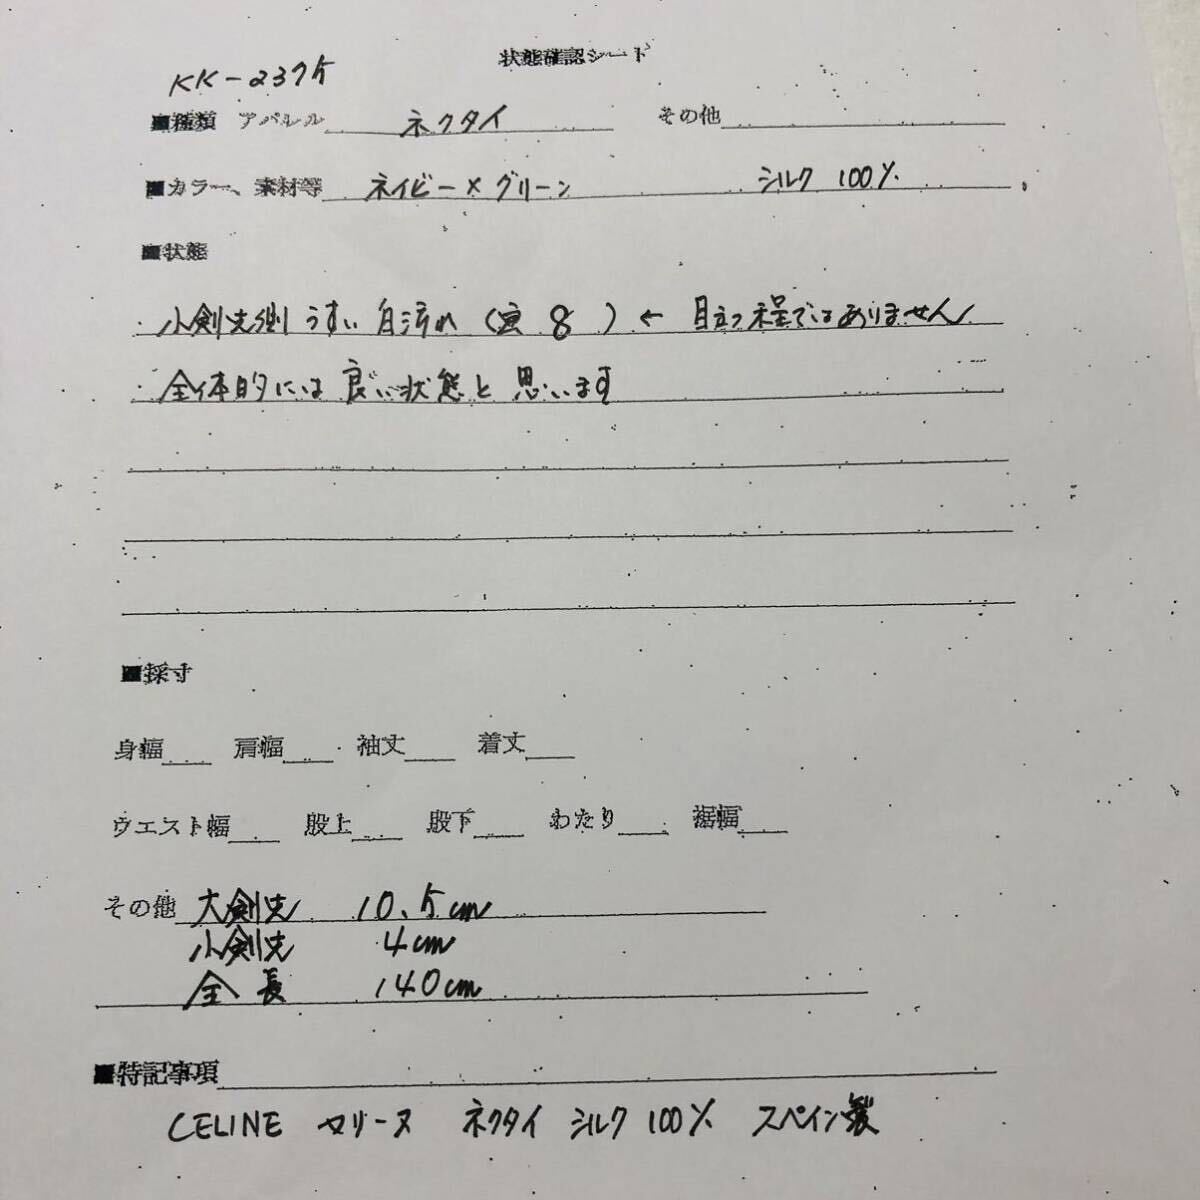 状態確認シート
KK-2375
■種類 アパレル ネクタイ その他
■カラー、素材等 ネイビー×グリーン シルク 100%
■状態
・小剣先側 うすい白汚れ (画 8 ) ← 目立つ程ではありません
・全体的には 良い状態と 思います
■採寸
身幅 肩幅 袖丈 着丈
ウエスト幅 股上 股下 わたり 裾幅
その他 大剣先 10.5cm
小剣先 4cm
全長 140cm
■特記事項
CELINE セリーヌ ネクタイ シルク 100% スペイン製